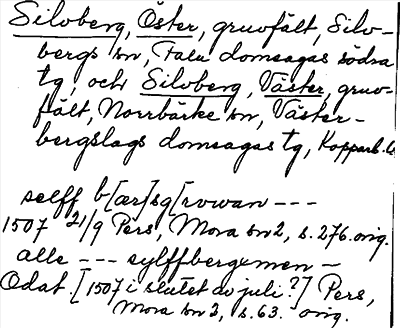 Silvberg, Öster, gruvfält, Silv-
bergs sn, Falu domsagas södra
tg, och Silvberg, Väster, gruv-
fält, Norrbärke sn, Väster-
bergslags domsagas tg, Kopparb. l.
selff b[ær]sg[rwwan ---
1507 21/9 Pers, Mora sn 2, s. 276. orig.
alle --- sylffbergxmen -
Odat. [1507 i slutet av juli?] Pers,
Mora sn 3, s. 63. orig.